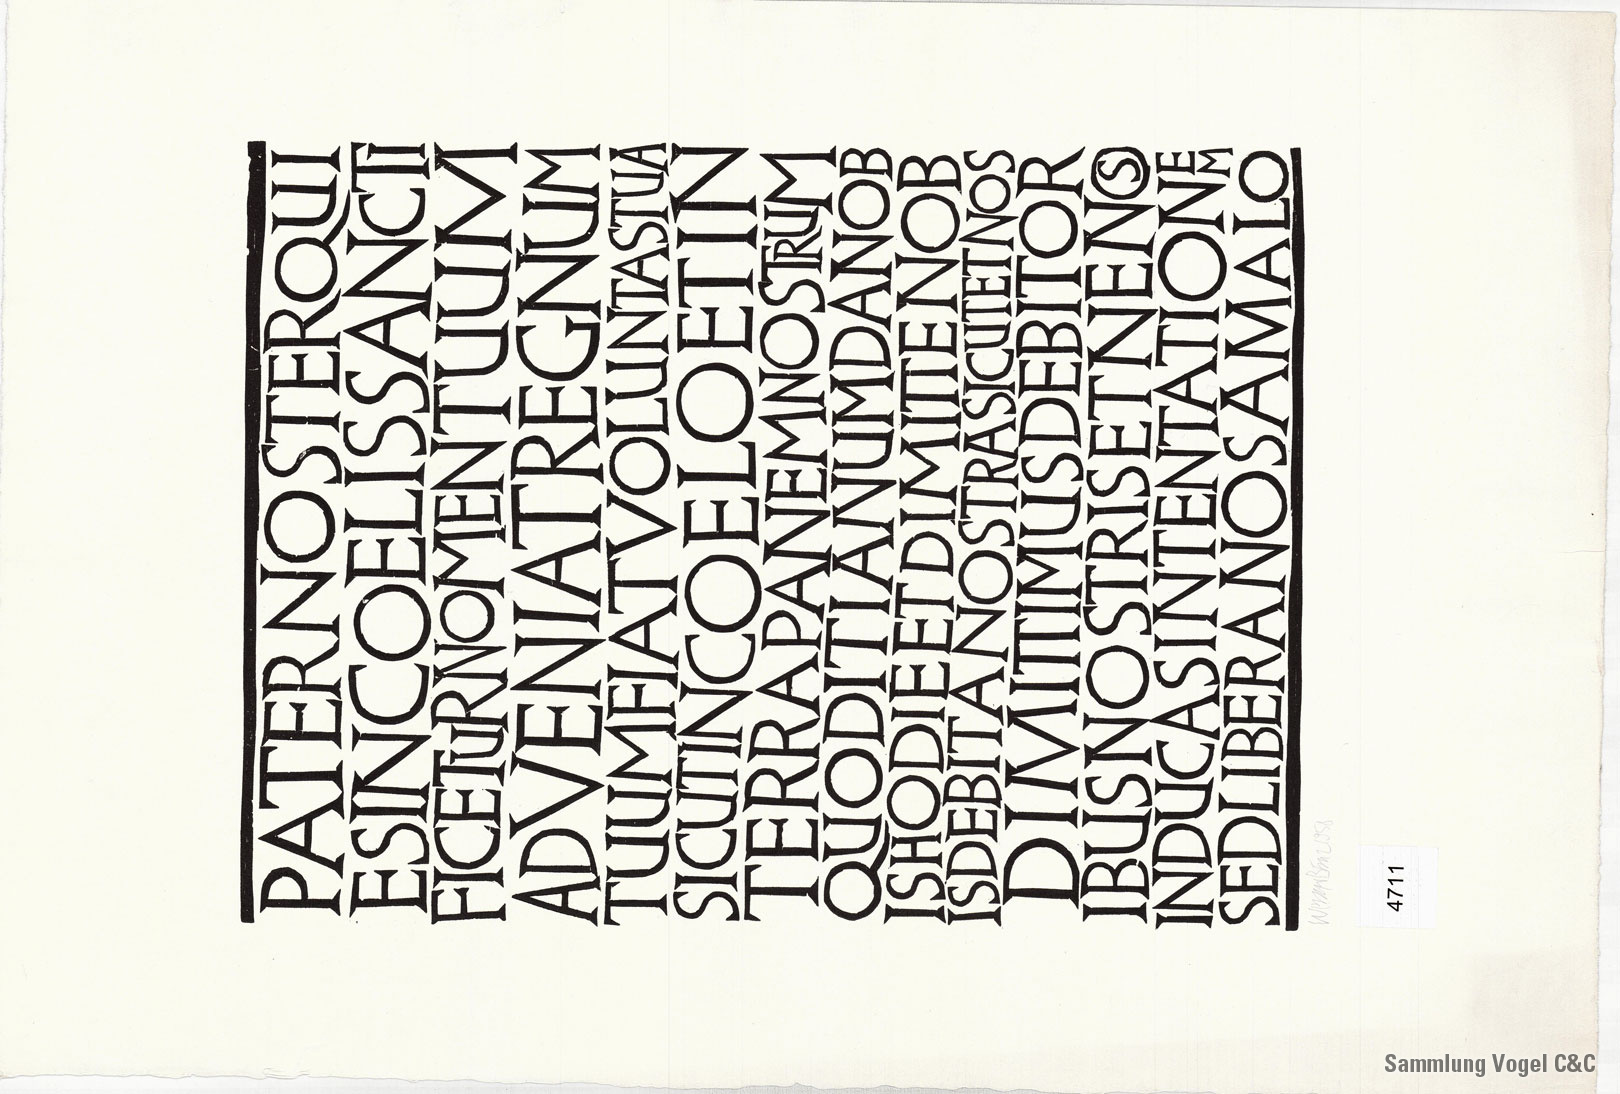 PATERNOSTERQUI
ESINCOELISSANCTI
FICETURNOMENTUUM
ADVENIATREGNUM
TUUMFIATVOLUNTASTUA
SICUTINCOELOETIN
TERRAPANEMNOSTRUM
QUODITIANUMDANOB
ISHODIEETDIMITTENOB
ISDEBITANOSTRASICUTETNOS
DIMITTIMUSDEBITOR
IBUSNOSTRISETNENOS
INDUCASINTENTATIONEM
SEDLIBERANOSAMALO
4711
Sammlung Vogel C&C